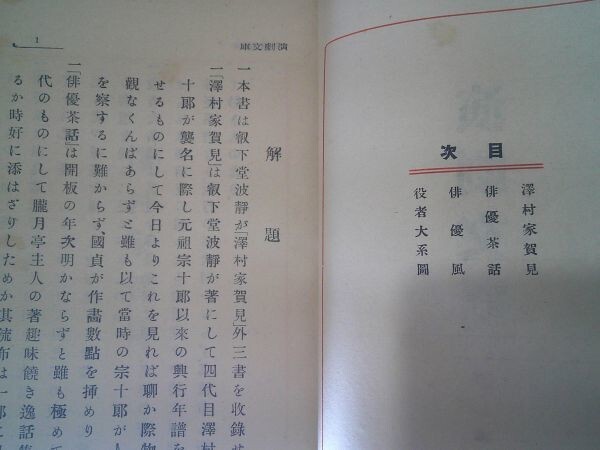 目次
澤村家賀見
俳優茶話
俳優風
役者大系圖
演劇文庫
1
解題
一本書は叡下堂波靜が「澤村家賀見」外三書を收錄せ
一「澤村家賀見」は叡下堂波靜が著にして四代目澤村
十郎が襲名に際し元祖宗十郎以來の興行年譜を
せるものにして今日よりこれを見れば聊か際物
觀なくんばあらずと雖も以て當時の宗十郎が人
を察するに難からず、國貞が作畵數點を揷めり
一「俳優茶話」は開板の年次明かならずと雖も極めて
代のものにして朧月亭主人の著趣味饒き逸話集
るか時好に添はざりしためか其流布は一部に